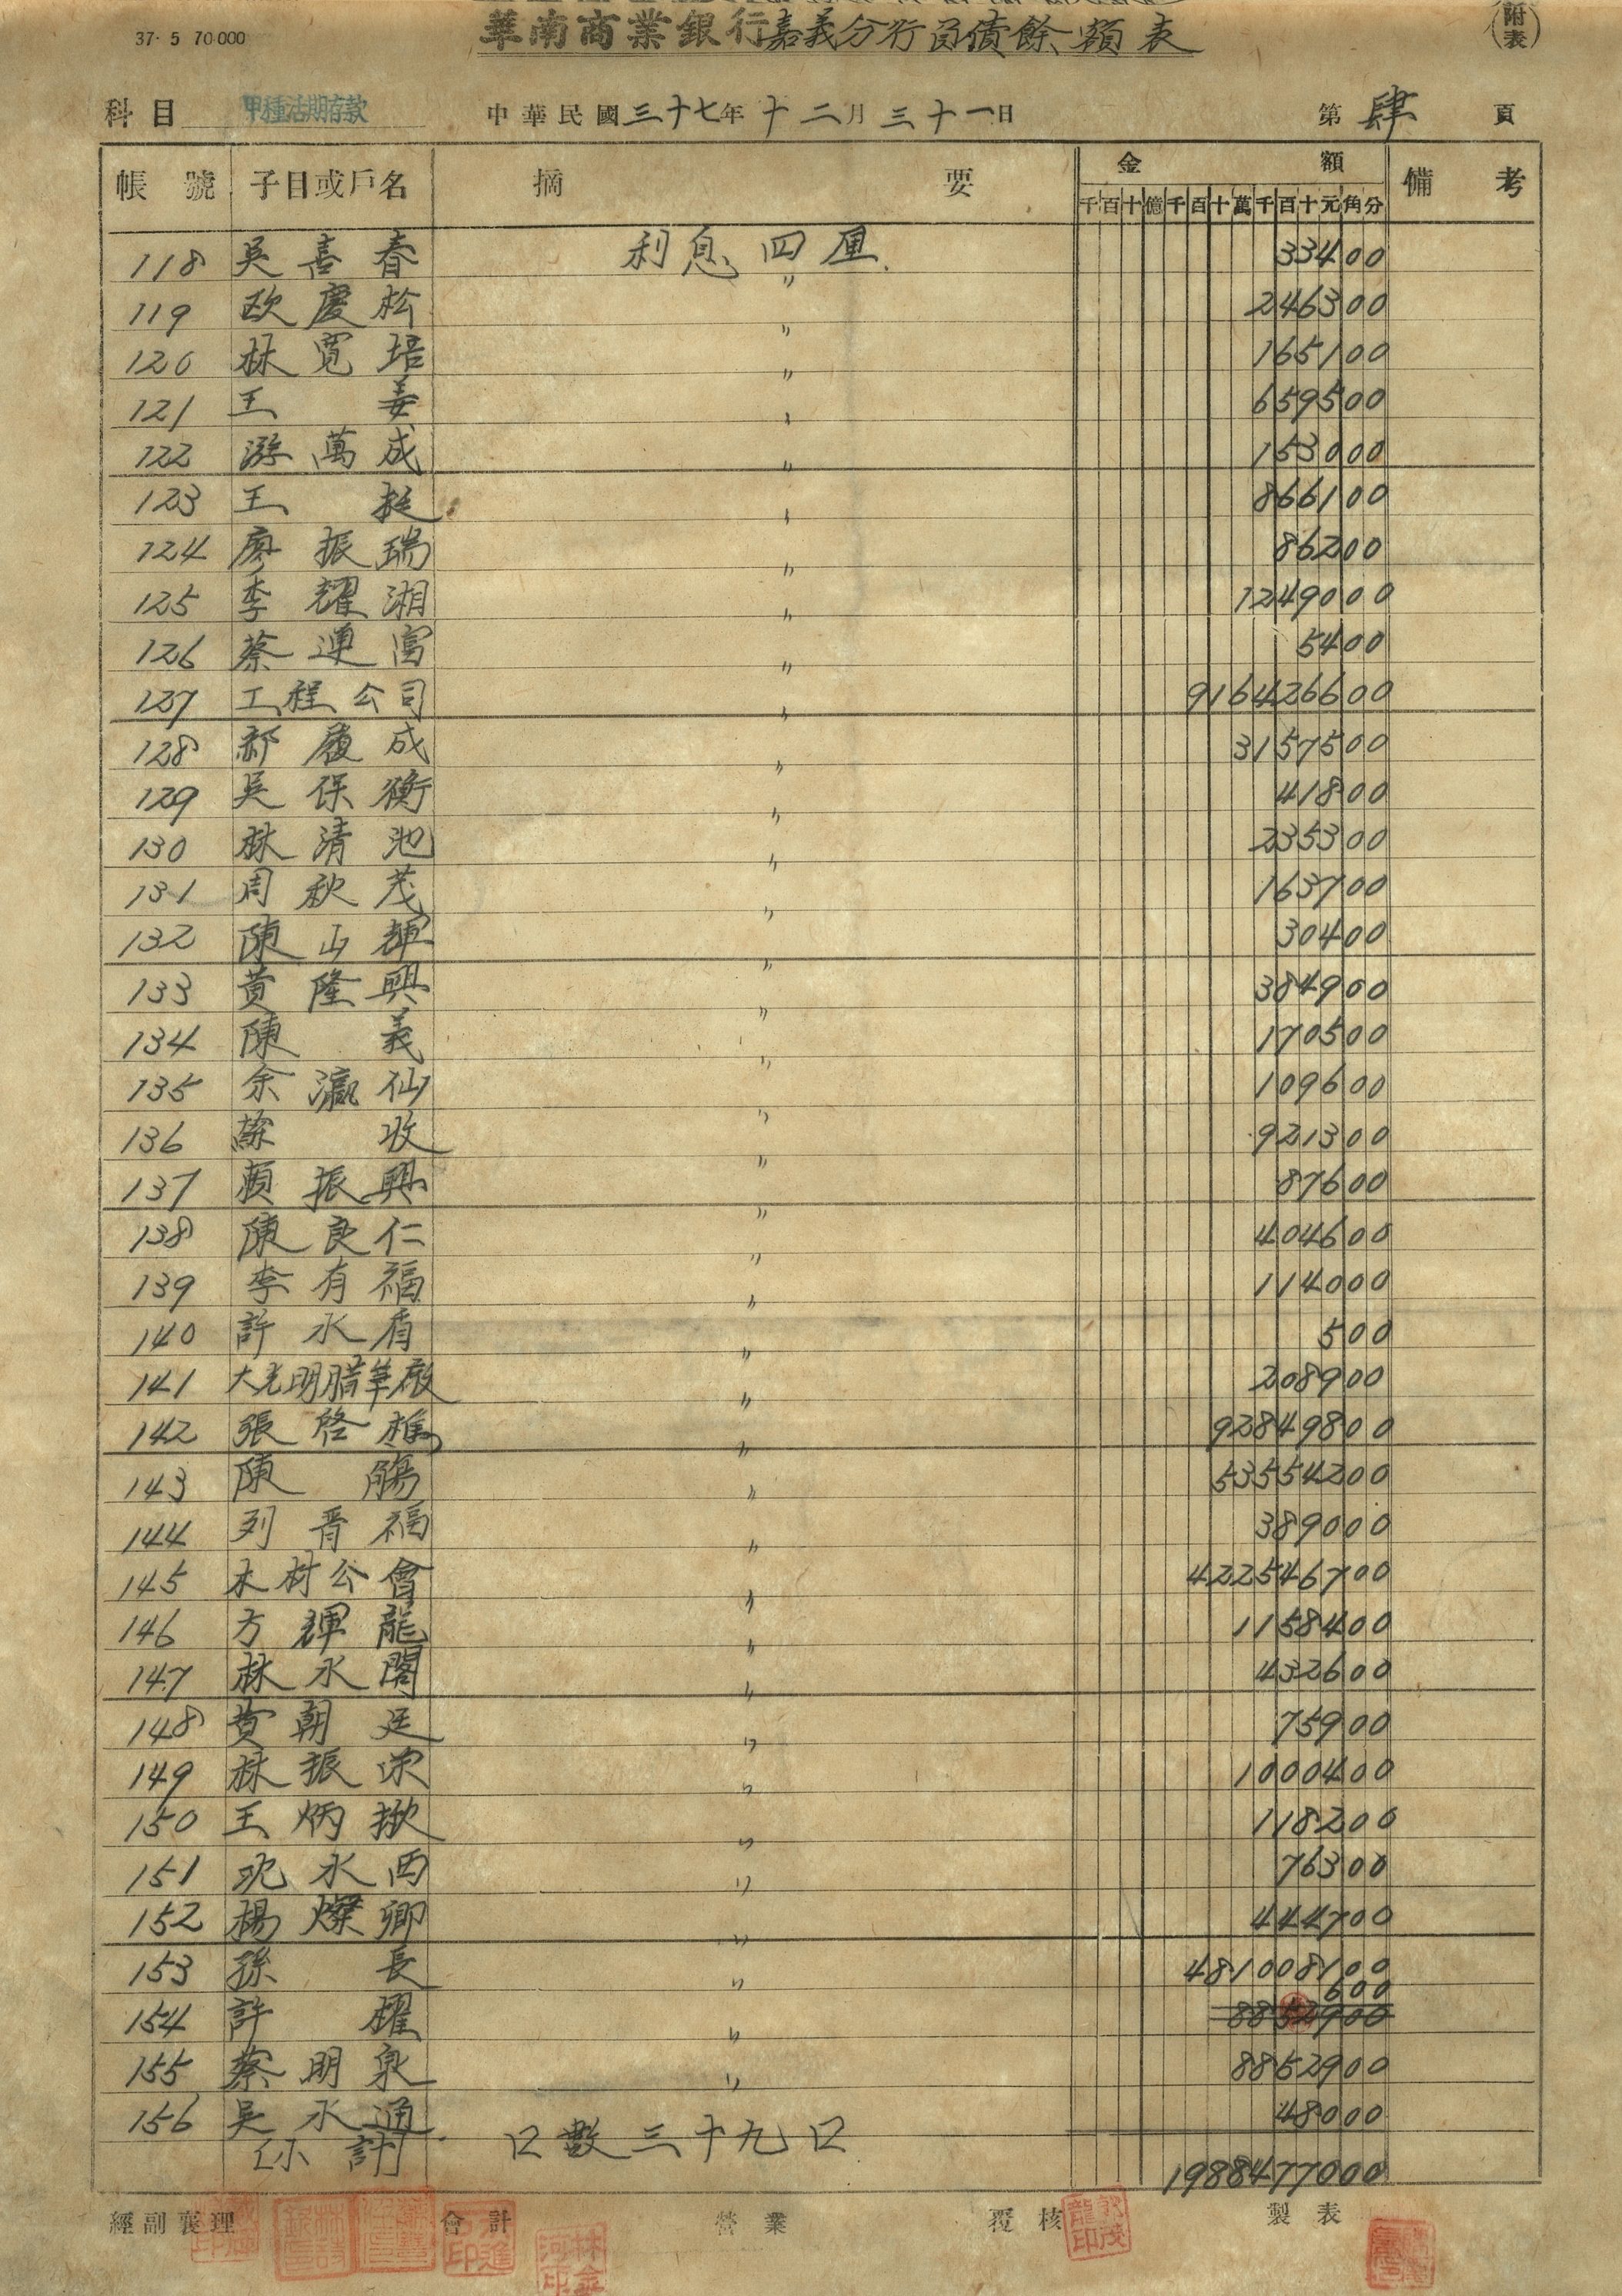 37· 5 70.000
華南商業銀行嘉義分行負債餘額表
(附表)
科目 甲種活期存款 中華民國三十七年十二月三十一日 第肆頁
帳號 子目或戶名 摘要 金額 備考
千百十億千百十萬千百十元角分
118 吳喜春 利息四厘 33400
119 欧慶松 〃 246300
120 林寬培 〃 165100
121 王姜 〃 659500
122 游萬成 〃 153000
123 王挺 〃 866100
124 廖振瑞 〃 86200
125 李耀湘 〃 1249000
126 蔡連富 〃 5400
127 工程公司 〃 916426600
128 履成 〃 3157500
129 吳保衡 〃 41800
130 林清池 〃 235300
131 周秋茂 〃 163700
132 陳山輝 〃 30400
133 黃隆興 〃 384900
134 陳義 〃 170500
135 余瀛仙 〃 109600
136 收 〃 921300
137 賴振興 〃 87600
138 陳良仁 〃 404600
139 李有福 〃 114000
140 許水眉 〃 500
141 大光明腊華廠 〃 208900
142 張啓樵 〃 92849800
143 陳觴 〃 53554200
144 列晋福 〃 389000
145 木材公會 〃 422546700
146 方輝龍 〃 1158400
147 林水閣 〃 432600
148 黃朝廷 〃 75900
149 林振栄 〃 1000400
150 王炳揪 〃 118200
151 沈水西 〃 76300
152 楊燦卿 〃 444700
153 孫長 〃 481008100
154 許耀 〃 600
8852900
155 蔡明泉 〃 8852900
156 吳水通 48000
小計 口數三十九口 1988477000
經副襄理 會計 營業 覆核 製表